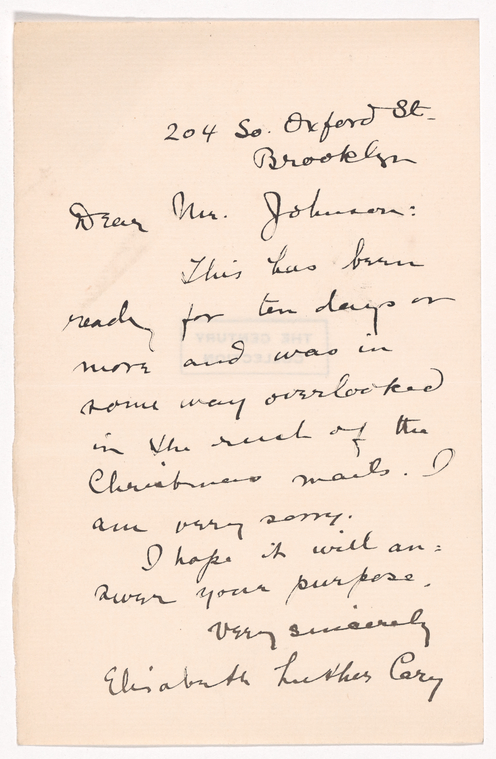 204 So. Oxford St.
Brooklyn
Dear Mr. Johnson:
This has been
ready for ten days or
more and was in
some way overlooked
in the rush of the
Christmas mails. I
am very sorry.
I hope it will an=
swer your purpose.
Very sincerely
Elisabeth Luther Cary
THE CENTURY
COLLECTION